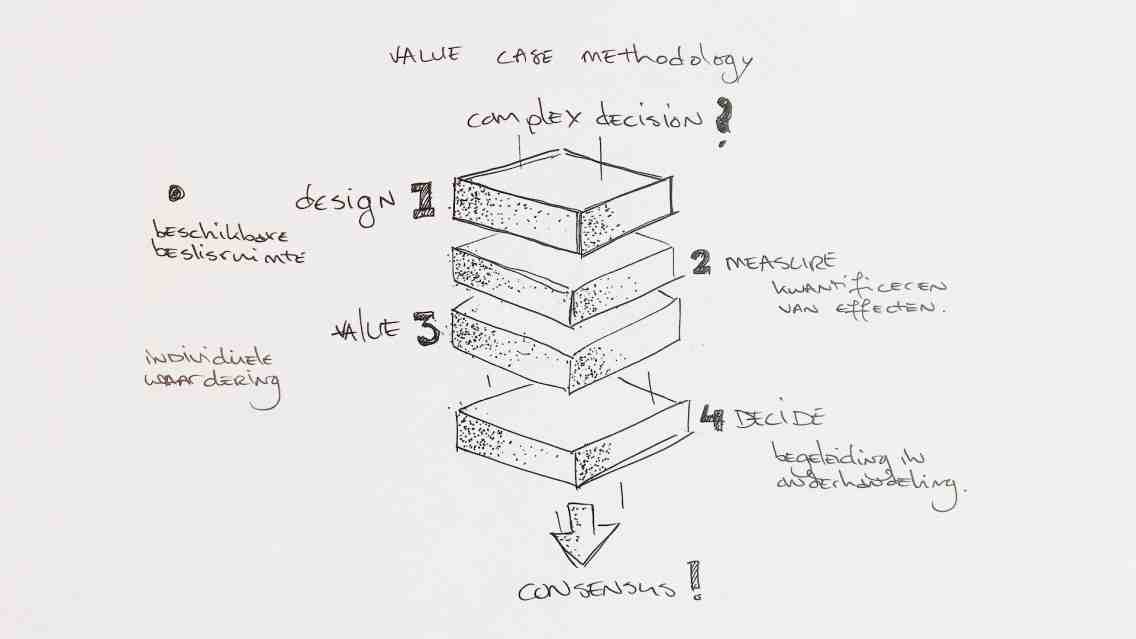 VALUE CASE METHODOLOGY
complex decision?
design 1
beschikbare
beslisruimte
2 MEASURE
kwantificeren
van effecten.
VALUE 3
individuele
waardering
4 DECIDE
begeleiding in
onderhandeling.
CONSENSUS!